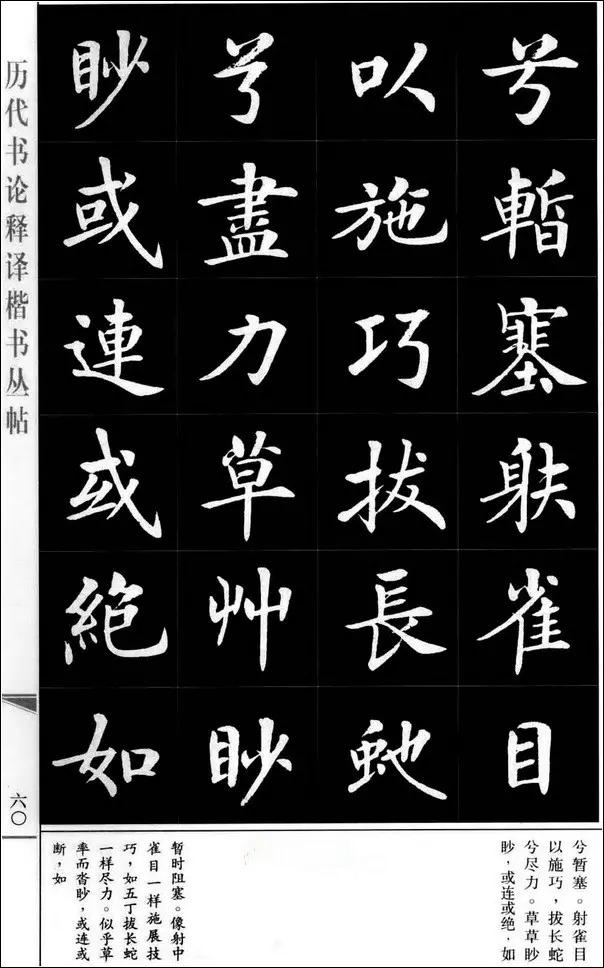 兮暫塞䠶雀目
㕥施巧拔長虵
兮盡力草艸眇
眇或連或絕如
兮暂塞。射雀目
以施巧，拔长蛇
兮尽力。草草眇
眇，或连或绝，如
暂时阻塞。像射中
雀目一样施展技
巧，如五丁拔长蛇
一样尽力。似乎草
率而杳眇，或连或
断，如
历代书论释译楷书丛帖
六〇